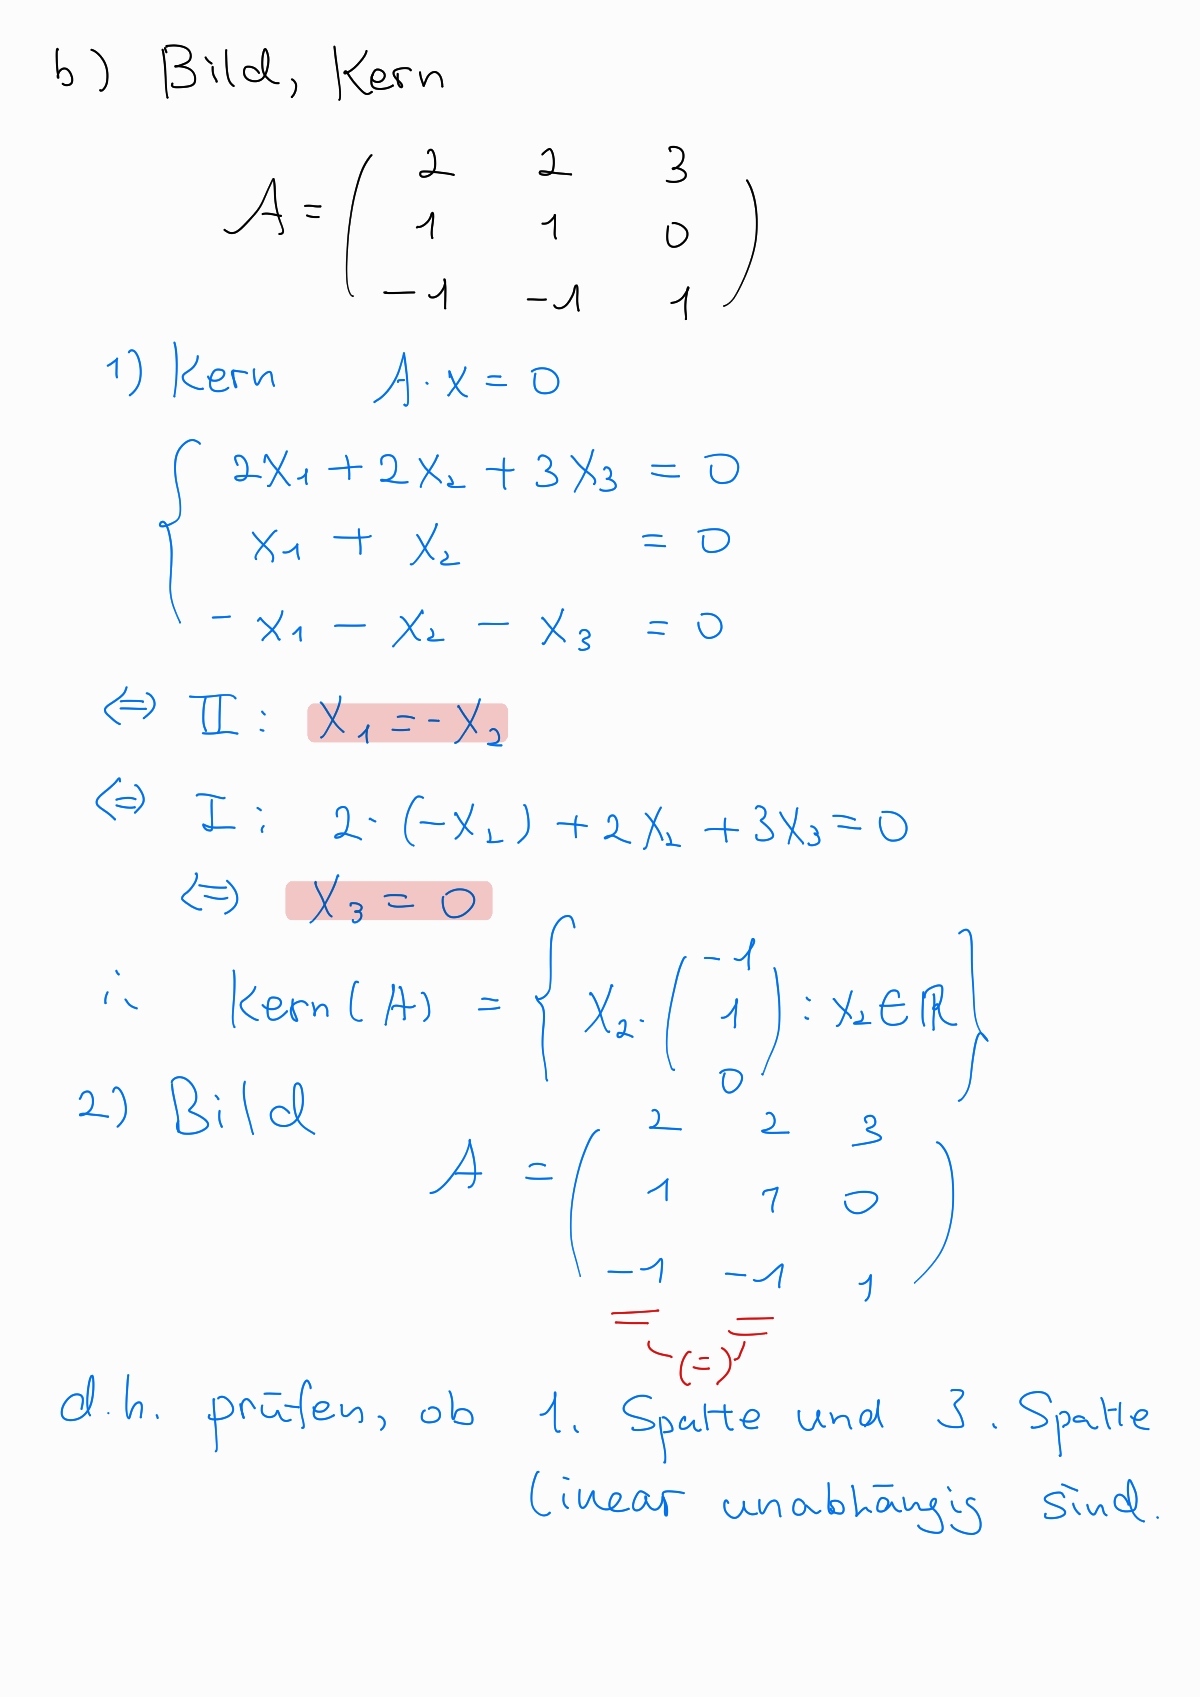 b) Bild, Kern
A = ( 2 2 3
1 1 0
-1 -1 1 )
1) Kern A · x = 0
{ 2x₁ + 2x₂ + 3x₃ = 0
x₁ + x₂ = 0
- x₁ - x₂ - x₃ = 0
⇔ II : x₁ = - x₂
⇔ I : 2 · (-x₂) + 2x₂ + 3x₃ = 0
⇔ x₃ = 0
∴ Kern (A) = { x₂ · ( -1 1 0 ) : x₂ ∈ ℝ }
2) Bild
A = ( 2 2 3
1 1 0
-1 -1 1 )
(=)
d.h. prüfen, ob 1. Spalte und 3. Spalte
linear unabhängig sind.